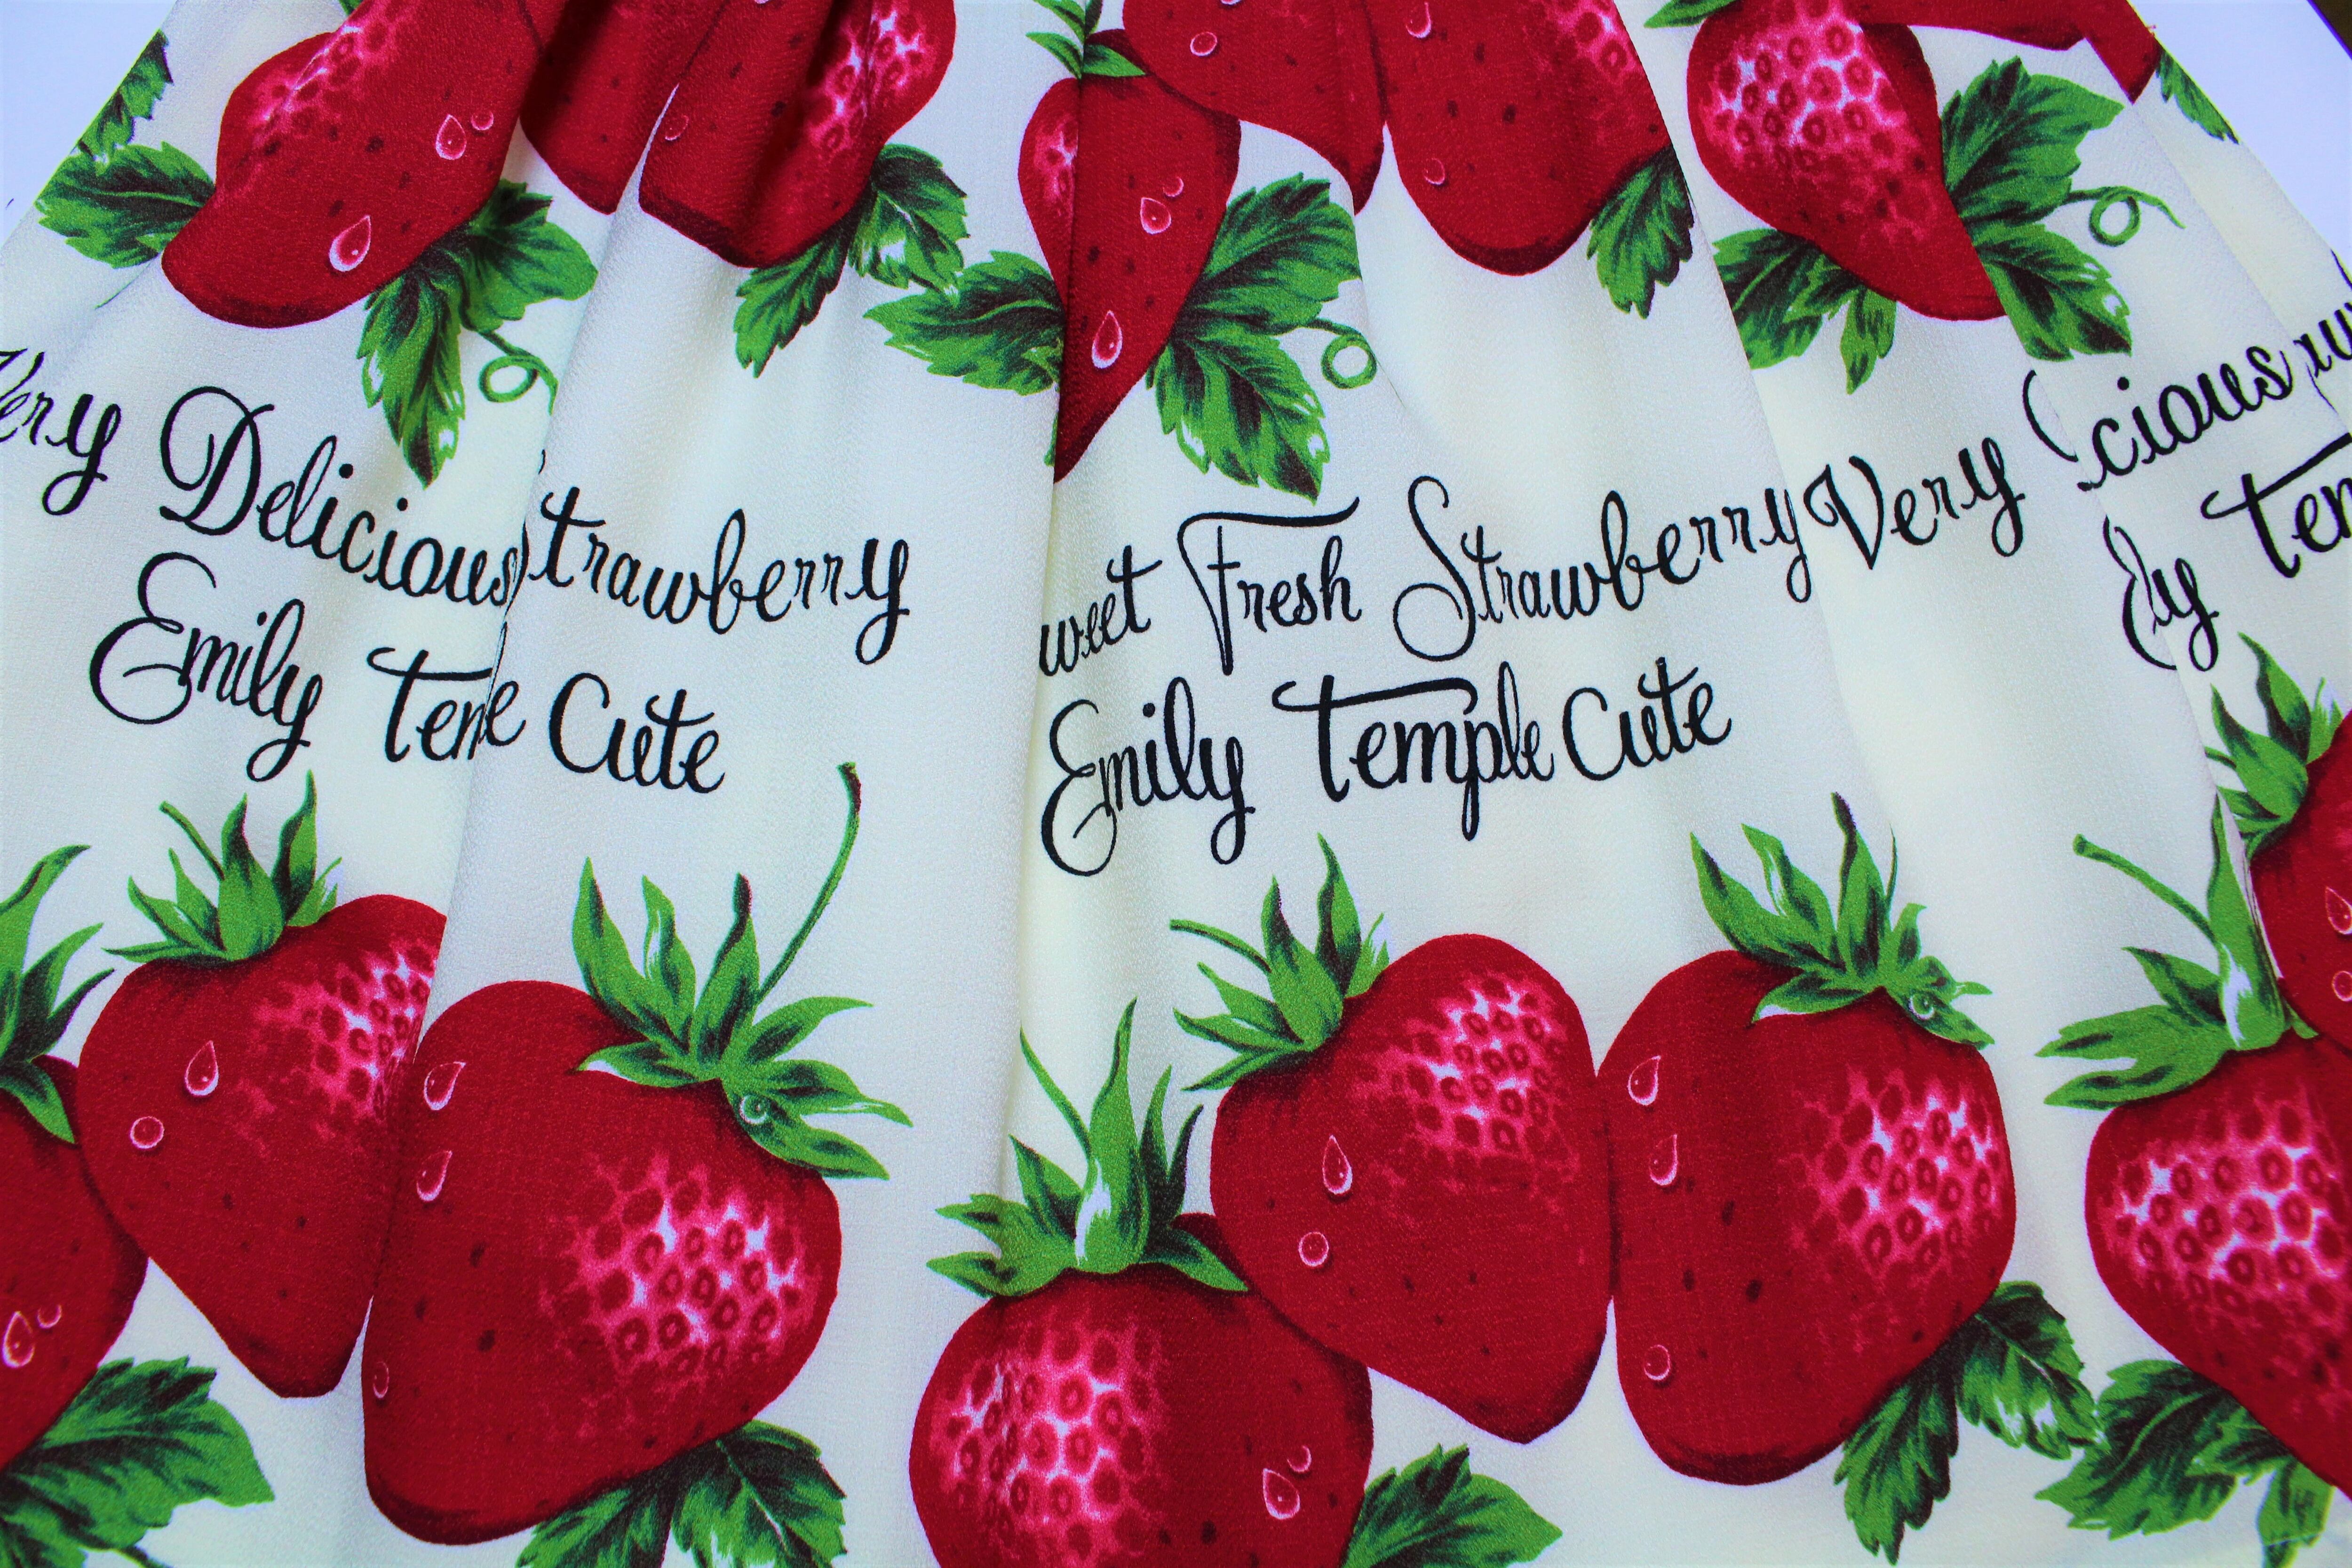 Very Delicious Strawberry
Emily Tem e Cute
weet Fresh Strawberry Very cious
Emily Temple Cute
ly Tem